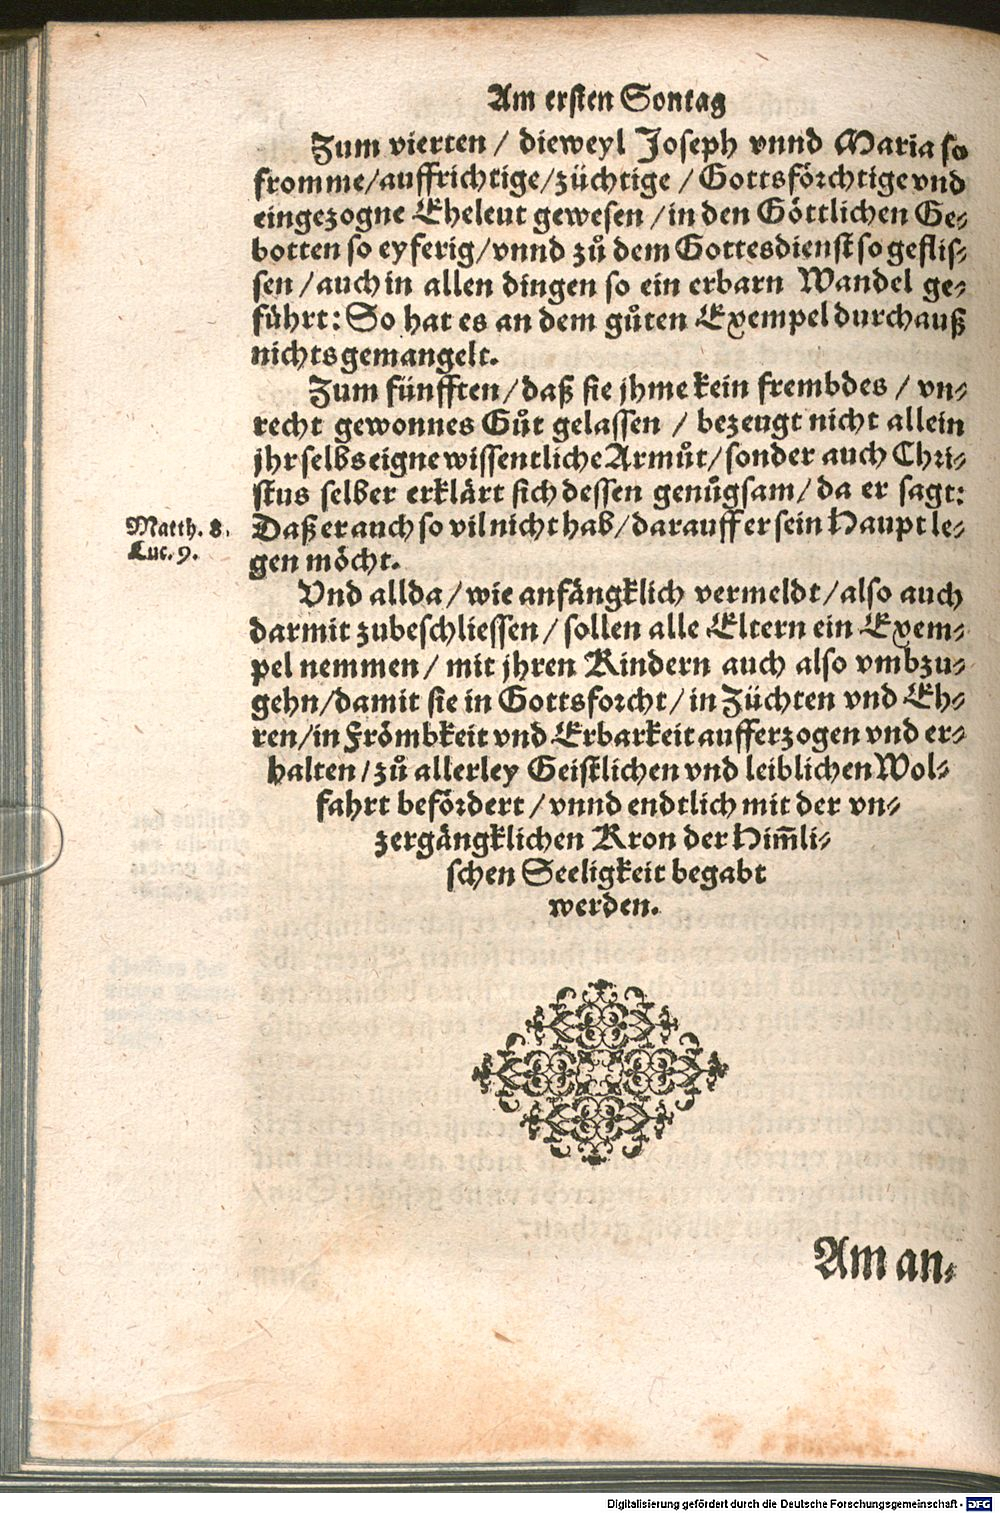 Am ersten Sontag
Zum vierten / dieweyl Joseph vnnd Maria so
fromme/auffrichtige/züchtige / Gottsförchtige vnd
eingezogne Eheleut gewesen / in den Göttlichen Ge-
botten so eyferig/vnnd zů dem Gottesdienst so geflis-
sen / auch in allen dingen so ein erbarn Wandel ge-
führt: So hat es an dem gůten Exempel durchauß
nichts gemangelt.
Zum fünfften/daß sie jhme kein frembdes / vn-
recht gewonnes Gůt gelassen / bezeugt nicht allein
jhr selbs eigne wissentliche Armůt/sonder auch Chri-
stus selber erklärt sich dessen genůgsam/da er sagt:
Matth. 8. Daß er auch so vil nicht hab/darauff er sein Haupt le-
Luc. 9. gen möcht.
Vnd allda/wie anfängklich vermeldt/also auch
darmit zubeschliessen/sollen alle Eltern ein Exem-
pel nemmen/ mit jhren Kindern auch also vmbzu-
gehn/damit sie in Gottsforcht/in Züchten vnd Eh-
ren/in Frömbkeit vnd Erbarkeit aufferzogen vnd er-
halten/zů allerley Geistlichen vnd leiblichen Wol-
fahrt befördert/vnnd endtlich mit der vn-
zergängklichen Kron der Him̃li-
schen Seeligkeit begabt
werden.
Am an-
Digitalisierung gefördert durch die Deutsche Forschungsgemeinschaft - DFG